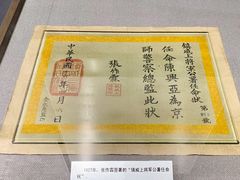 鎮威上將軍公署任命狀
任命陳興亞為京
師警察總監此狀
張作霖
中華民國
年
月
日
1927年，張作霖簽署的“鎮威上將軍公署任命狀”